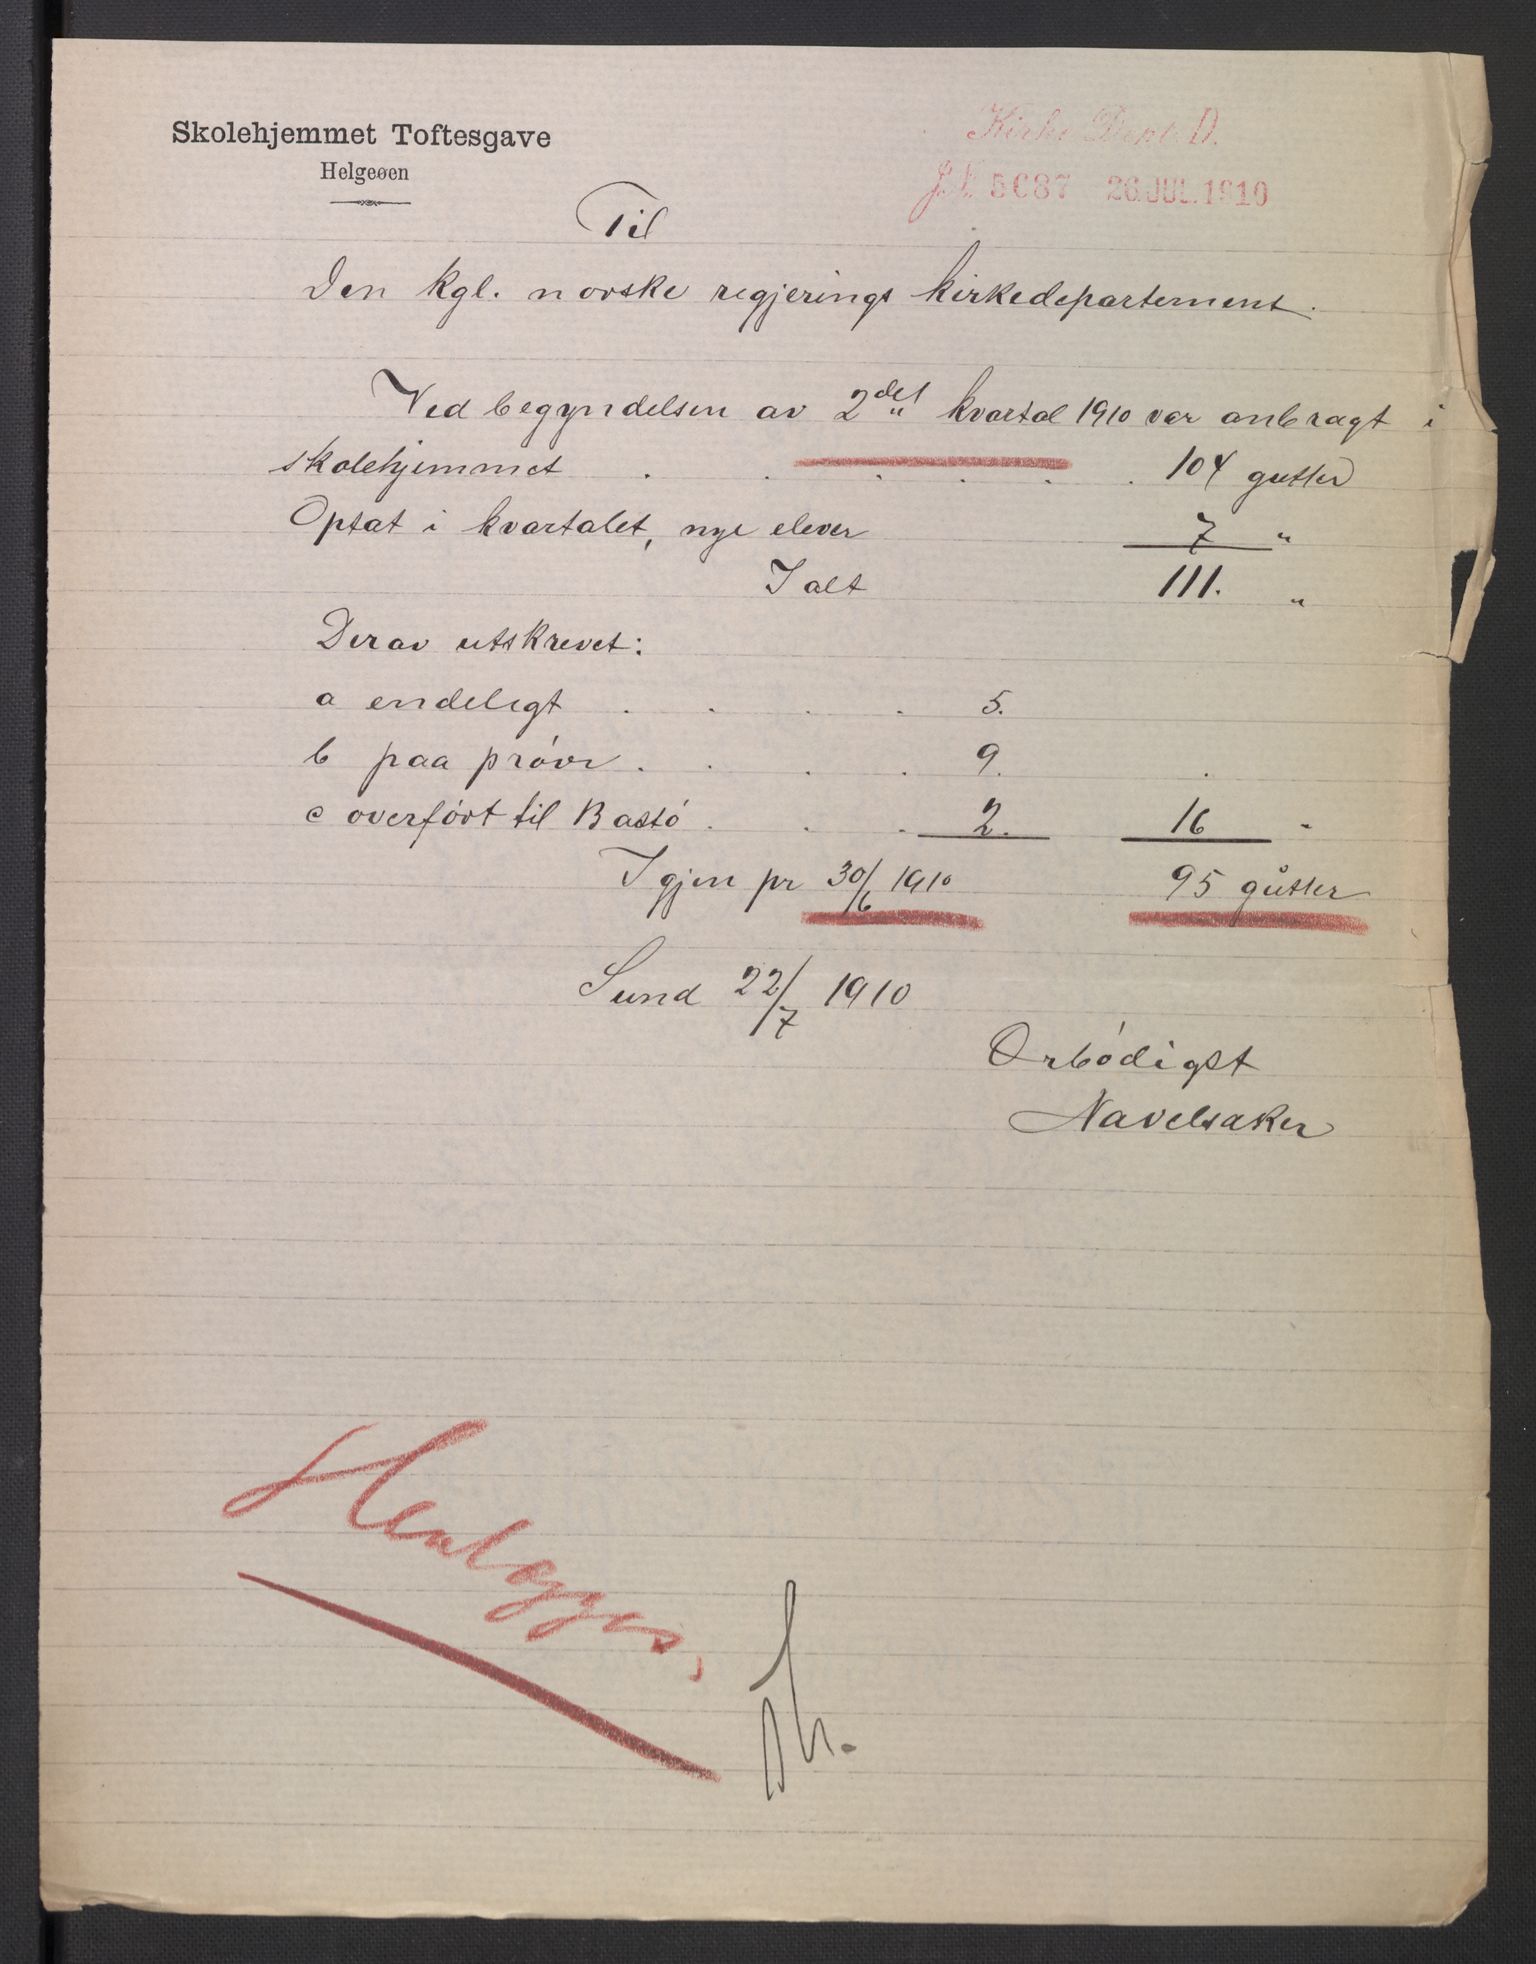 Skolehjemmet Toftesgave
Helgeøen
Kirke Dept. D.
J.N. 5687 26.JUL.1910
Til
Den kgl. norske regjerings kirkedepartement.
Ved begyndelsen av 2det kvartal 1910 var anbragt i
skolehjemmet . . . . . . 104 gutter
Optat i kvartalet, nye elever 7 "
I alt 111. "
Derav utskrevet:
a endeligt . . . . 5.
b paa prøve . . . . 9.
c overført til Bastø . . . 2. 16 "
Igjen pr 30/6 1910 95 gutter
Sund 22/7 1910
Ørbødigst
Navelsaker
Henlægges,